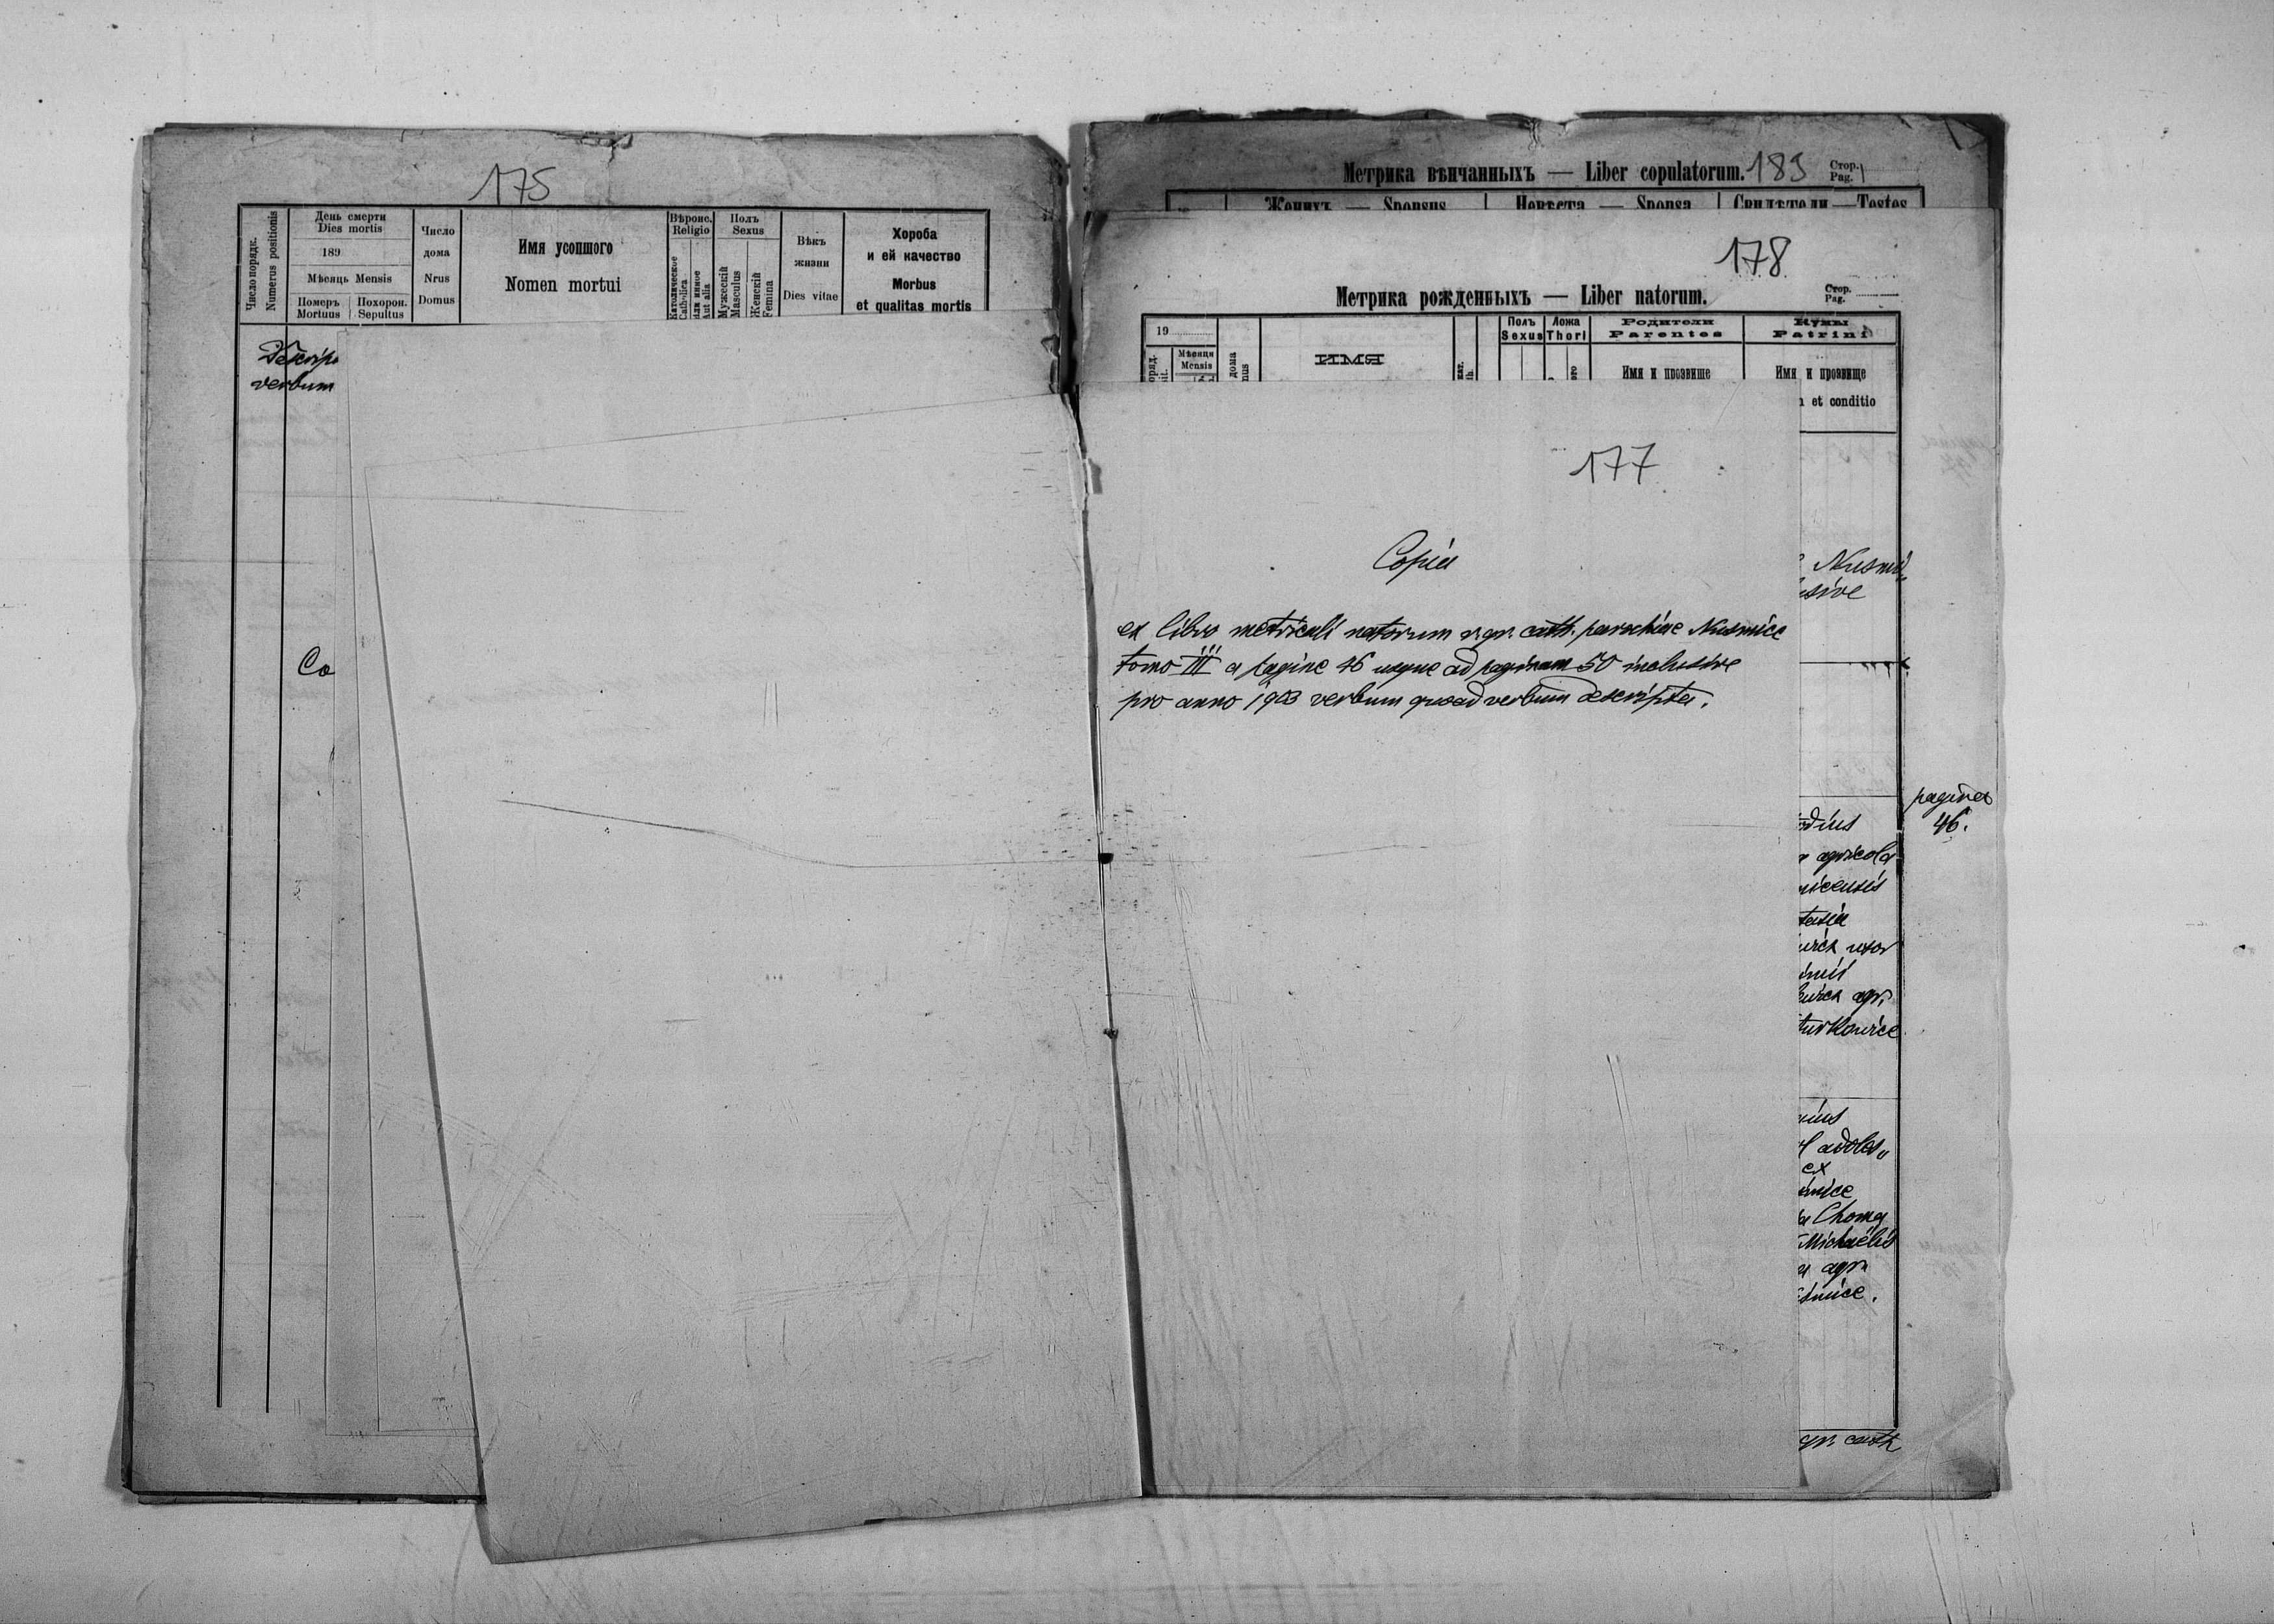 175
Число порядк.
Numerus positionis
День смерти
Dies mortis
189
Мѣсяць Mensis
Померъ
Mortuus
Похорон.
Sepultus
Число
дома
Nrus
Domus
Имя усопшого
Nomen mortui
Вѣроис.
Religio
Католическое
Catholica
или инное
Aut alia
Полъ
Sexus
Мужескій
Masculus
Женскій
Femina
Вѣкъ
жизни
Dies vitae
Хороба
и ей качество
Morbus
et qualitas mortis
verbum
Co
Метрика вѣнчанныхъ — Liber copulatorum. 183 Стор. Pag. 1
Женихъ — Sponsus Невѣста — Sponsa Свидѣтели — Testes
178
Метрика рожденныхъ — Liber natorum. Стор. Pag.
19
Мѣсяця
Mensis
дома
ИМЯ
Полъ
Sexus
Ложа
Thori
Родители
Parentes
Имя и прозвище
Кумы
Patrini
Имя и прозвище
et conditio
177
Copia
ex libro metricali natorum r. gr. cath. parochiae Nusmice
tomo III a pagina 46 usque ad paginam 50 inclusive
pro anno 1903 verbum quoad verbum descripta.
Nusmi„
usive
pagina
46.
dius
agricola
micensis
tasia
uxor
agr.
turkowice
nius
adoles„
ex
smice
Choma
Michaëlis
agr.
smice.
gr. cath